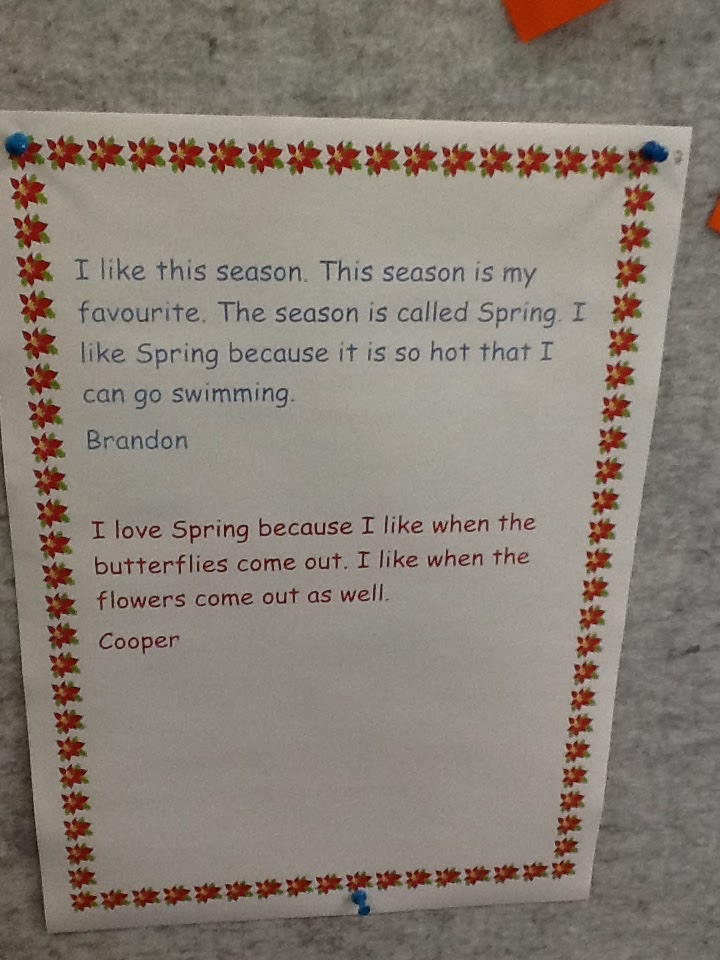 I like this season. This season is my
favourite. The season is called Spring. I
like Spring because it is so hot that I
can go swimming.
Brandon
I love Spring because I like when the
butterflies come out. I like when the
flowers come out as well.
Cooper